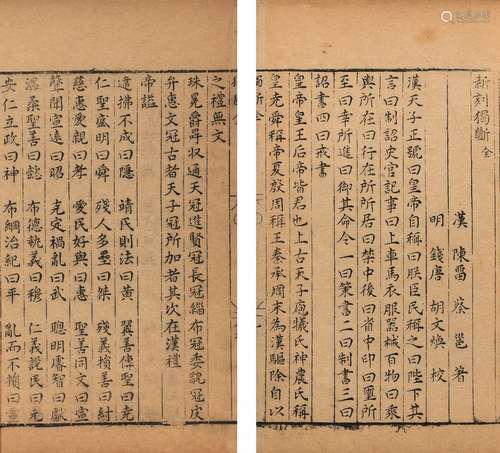 新刻獨斷 全
漢 陳畱 蔡邕 著
明 錢唐 胡文煥 校
漢天子正號曰皇帝自稱曰朕臣民稱之曰陛下其
言曰制詔史官記事曰上車馬衣服器械百物曰乘
輿所在曰行在所所居曰禁中後曰省中印曰璽所
至曰幸所進曰御其命令一曰策書二曰制書三曰
詔書四曰戒書
皇帝皇王后帝皆君也上古天子庖犧氏神農氏稱
皇堯舜稱帝夏殷周稱王秦承周末為漢驅除自以
之禮無文
珠冕爵冔收通天冠進賢冠長冠緇布冠委貌冠皮
弁惠文冠古者天子冠所加者其次在漢禮
帝謚
違拂不成曰隱 靖民則法曰黃 翼善傳聖曰堯
仁聖盛明曰舜 殘人多壘曰桀 殘義損善曰紂
慈惠愛親曰孝 愛民好與曰惠 聖善同文曰宣
聲聞宣遠曰昭 克定禍亂曰武 聰明睿智曰獻
溫柔聖善曰懿 布德執義曰穆 仁義說民曰元
安仁立政曰神 布綱治紀曰平 亂而不損曰靈